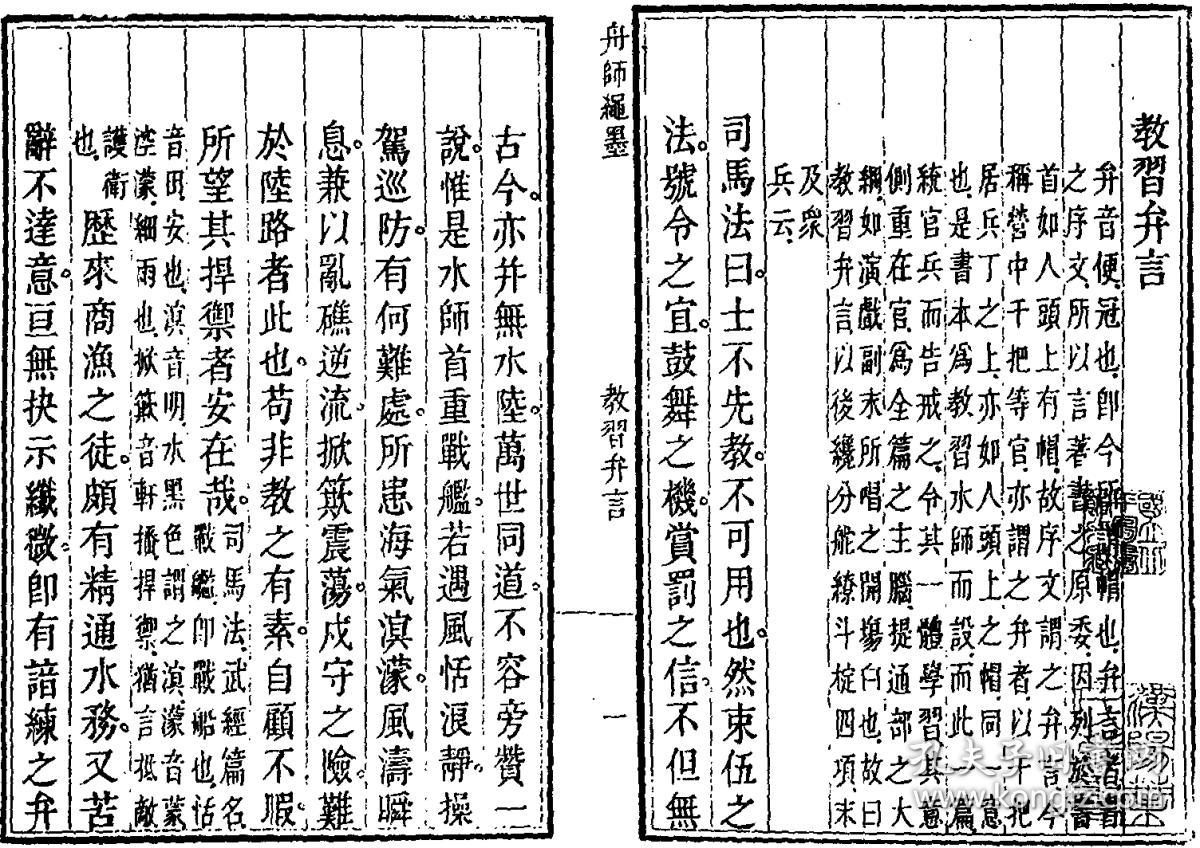 教習弁言
弁音便冠也即今所謂帽也弁言者書
之序文所以言著書之原委因列於書
首如人頭上有帽故序文謂之弁言今
稱營中千把等官亦謂之弁者以千把
居兵丁之上亦如人頭上之帽同一意
也是書本為教習水師而設而此一篇
統官兵而告戒之令其一體學習其意
側重在官為全篇之主腦提通部之大
綱如演戲副末所唱之開塲白也故曰
教習弁言以後纔分舵繚斗椗四項末
及衆
兵云
司馬法曰士不先教不可用也然束伍之
法號令之宜鼓舞之機賞罰之信不但無
舟師繩墨
教習弁言
一
古今亦并無水陸萬世同道不容旁贊一
說惟是水師首重戰艦若遇風恬浪靜操
駕巡防有何難處所患海氣溟濛風濤瞬
息兼以亂礁逆流掀簸震蕩戍守之險難
於陸路者此也苟非教之有素自顧不暇
所望其捍禦者安在哉
司馬法武經篇名
戰艦即戰船也恬
音田安也溟音明水黑色謂之溟濛音蒙
涳濛細雨也掀簸音軒播捍禦猶言抵敵
護衛
也
歷來商漁之徒頗有精通水務又苦
辭不達意亘無抉示纖微即有諳練之弁
孔夫子旧书网
www.kongfz.com